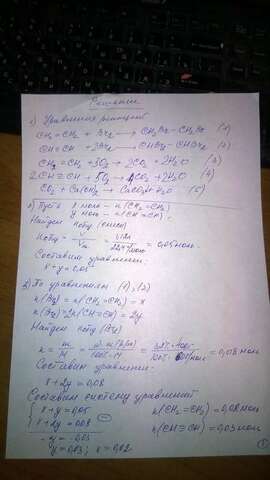 Решение
1) Уравнения реакций
CH₂=CH₂ + Br₂ → CH₂Br-CH₂Br (1)
CH≡CH + 2Br₂ → CHBr₂-CHBr₂ (2)
CH₂=CH₂ + 3O₂ → 2CO₂ + 2H₂O (3)
2CH≡CH + 5O₂ → 4CO₂ + 2H₂O (4)
CO₂ + Ca(OH)₂ → CaCO₃ + H₂O (5)
2) Пусть x моль - n(CH₂=CH₂)
y моль - n(CH≡CH)
Найдем nобщ (смеси)
nобщ = V/Vm = = 0,05 моль
Составим уравнение:
x + y = 0,05
3) По уравнениям (1), (2)
n(Br₂) = n(CH₂=CH₂) = x
n(Br₂) = 2n(CH≡CH) = 2y
Найдем nобщ (Br₂)
n = m/M = = = 0,08 моль
Составим уравнение:
x + 2y = 0,08
Составим систему уравнений
x + y = 0,05 n(CH₂=CH₂) = 0,0 моль
x + 2y = 0,08 n(CH≡CH) = 0,03 моль
-y = -0,03
y = 0,03; x = 0,02